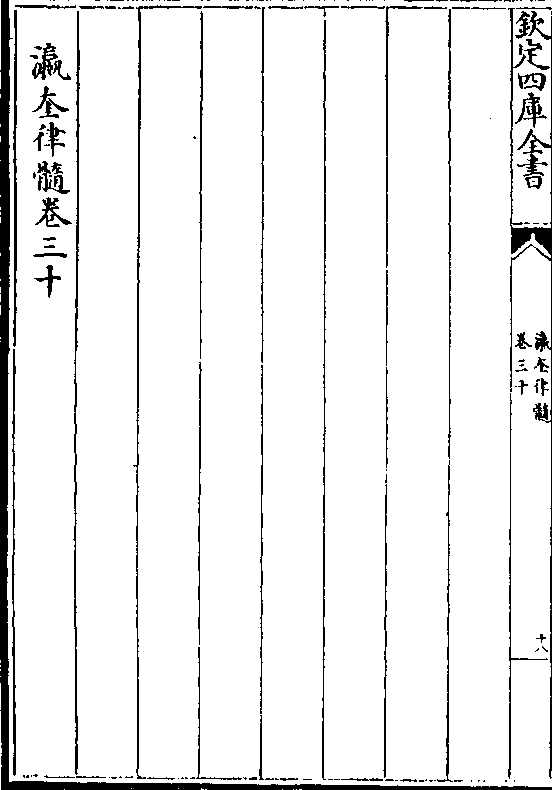 欽定四庫全書
瀛奎律髓
卷三十
十八
瀛奎律髓卷三十